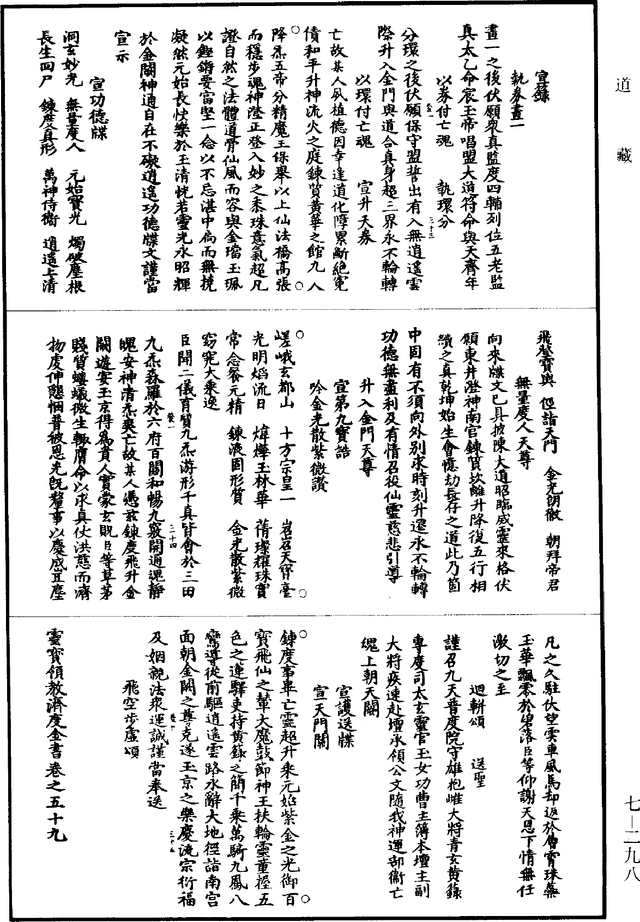 道藏
宣籙
執券畫一
畫一之後伏願眾真監度四輔列位五老監
真太乙命宸玉帝唱盟大道符命與天齊年
以券付亡魂　執環分
分環之後伏願保守盟誓出有入無逍遙雲
際升入金門與道合真身超三界永不輪轉
以環付亡魂　宣升天券
亡故某人夙植德因幸逢道化障累斷絕冤
債和平升神流火之庭鍊質黃華之館九人
降炁五帝分精魔王保舉以上仙法橋高張
而穩步魂神陞正登入妙之黍珠意氣超凡
證自然之法體道骨仙風而容與金璫玉珮
以鏗鏘要當堅一念以不忘湛中扃而無撓
凝然元始長快樂於玉清恍若靈光永昭輝
於金闕神通自在不礙逍遙功德牒文謹當
宣示
宣功德牒
洞玄妙光　無量度人　元始寶光　燭破塵根
長生四尸　鍊度真形　萬神侍衛　逍遙上清
飛登寶輿　徑詣天門　金光朗徹　朝拜帝君
無量度人天尊
向來牒文已具披陳大道昭臨威靈來格伏
願東井澄神南宮鍊質坎離升降復五行相
續之真乾坤始生會億劫長存之道此乃箇
中固有不須向外別求時刻升遷永不輪轉
功德無盡利及有情召役仙靈慈悲引導
升入金門天尊
宣第九寶誥
吟金光散紫微讚
嵯峨玄都山　十方宗皇一　岧岧天寶臺
光明焰流日　煒燁玉林華　蒨璨耀珠實
常念餐元精　鍊液固形質　金光散紫微
窈窕大乘逸
臣聞二儀育質九炁游形千真皆會於三田
九炁森羅於六府百關和暢九竅開通魂靜
魄安神清炁爽亡故某人憑茲鍊度飛升金
闕遊宴玉京得為貴人實蒙玄貺臣等草茅
賤質螻蟻微生輒膺命以求真仗洪慈而濟
物虔伸懇悃普被恩光既營事以慶成宜塵
凡之久駐伏望雲車風馬却返於層霄珠蘂
玉華飄零於碧落臣等仰謝天恩下情無任
激切之至
迴軿頌　送聖
謹召九天普度院守雄抱雌大將青玄黃籙
專度司太玄靈官玉女功曹主簿本壇主副
大將疾速赴壇承領公文隨我神運部衛亡
魂上朝天闕
宣護送牒
宣天門關
鍊度事畢亡靈超升乘元始紫金之光御百
寶飛仙之輦大魔鼓節神王扶輪靈童握五
色之連驛吏持黃籙之簡千乘萬騎九鳳八
鸞導從前驅逍遙雲路永辭大地徑詣南宮
面朝金闕之尊克遂玉京之樂慶流宗衍福
及姻親法眾運誠謹當奉送
飛空步虛頌
靈寶領教濟度金書卷之五十九
七—二九八